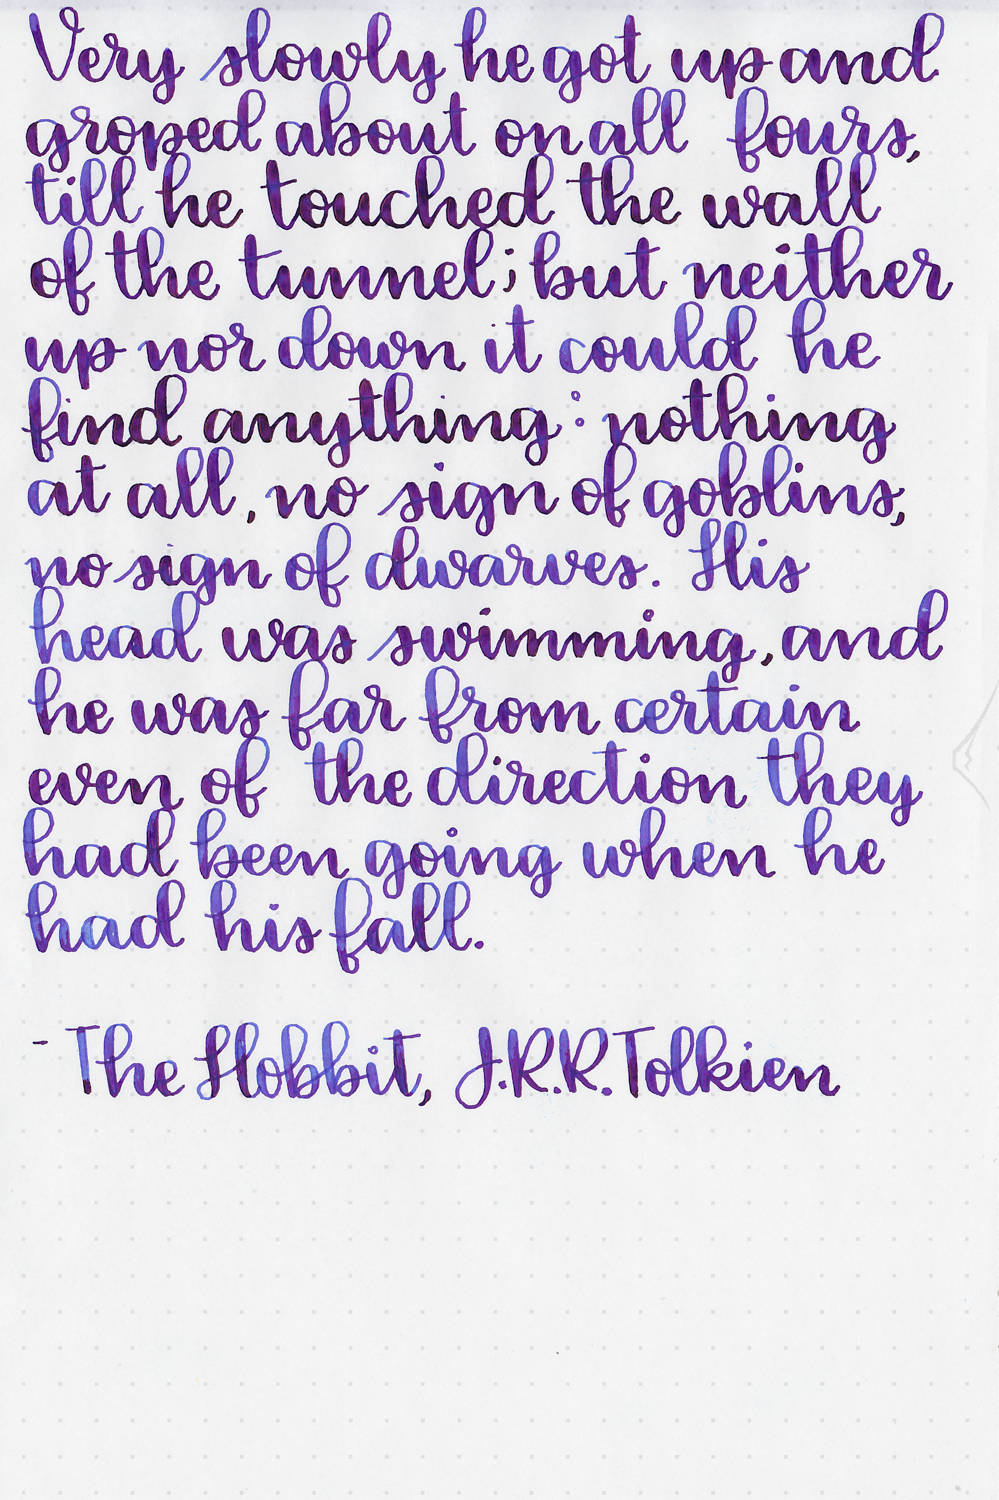 Very slowly he got up and
groped about on all fours,
till he touched the wall
of the tunnel; but neither
up nor down it could he
find anything: nothing
at all, no sign of goblins,
no sign of dwarves. His
head was swimming, and
he was far from certain
even of the direction they
had been going when he
had his fall.
- The Hobbit, J.R.R. Tolkien